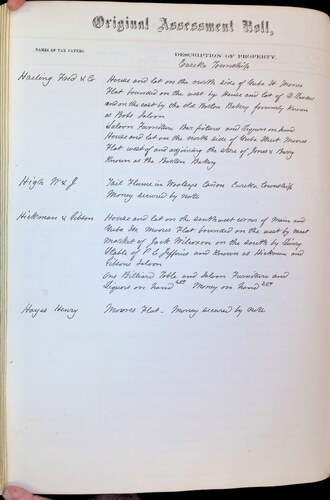 Original Assessment Roll,
NAMES OF TAX PAYERS.
DESCRIPTION OF PROPERTY.
Eureka Township
House and lot on the north side of Main St Moores
Flat bounded on the west by House and lot of
and on the east by the old Boston Bakery formerly known
as Bobs Saloon
Saloon Furniture Bar fixtures and Liquors on hand
House and lot on the north side of Main Street Moores
Flat west of and adjoining the store of Jones &
Known as the Boston Bakery
High W & J
Tail Flume in Wooleys Cañon Eureka Township
Money secured by note
Hickman & Gibson
House and lot on the southwest corner of Main and
Moores Flat bounded on the west by meat
market of Jack Wilcoxson on the south by Livery
Stable of P C Jeffries and Known as Hickman and
Gibsons Saloon
One Billiard Table and Saloon Furniture and
Liquors on hand Money on hand
Hayes Henry
Moores Flat - Money secured by note